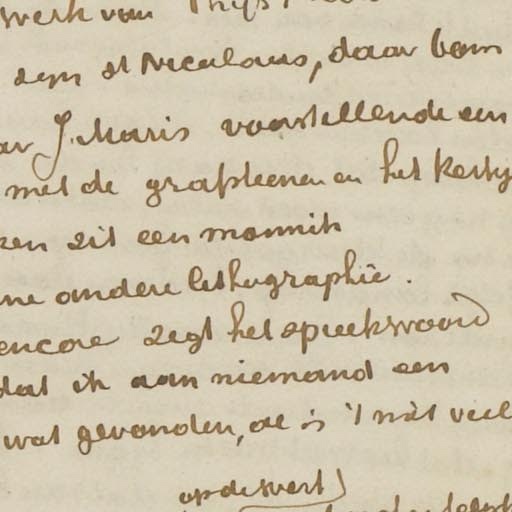 werk van Thijs
zijn St Nicolaas, daar kom
J. Maris voorstellende een
met de grafsteenen en het kerkje
zit een mannik
andere lithographie.
encore zegt het spreekwoord
dat ik aan niemand een
wat gevonden, al is 't niet veel
op de wert